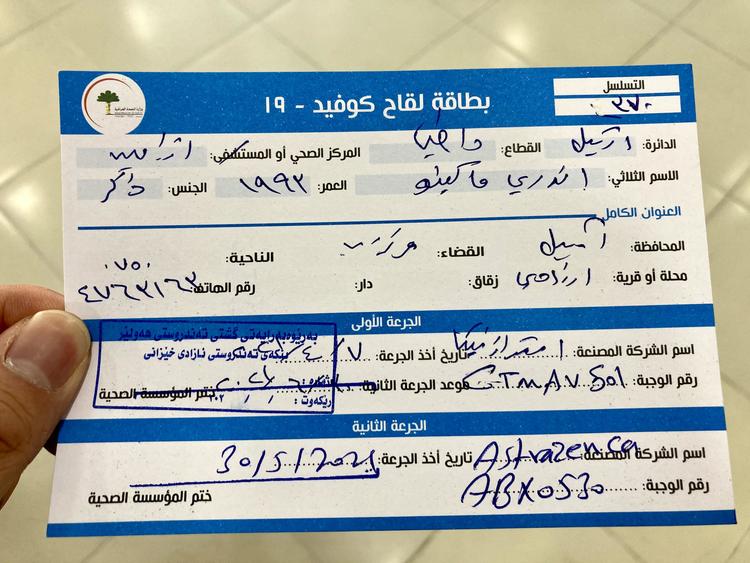 التسلسل
بطاقة لقاح كوفيد - ١٩
٣٧٠
الدائرة: اربيل القطاع: المركز الصحي أو المستشفى:
الاسم الثلاثي: اندري العمر: ١٩٩٢ الجنس: ذكر
العنوان الكامل:
المحافظة: اربيل القضاء: مركز الناحية: ٠٧٥٠
محلة أو قرية: زقاق: دار: رقم الهاتف: ٤٧٦٣١٦٣
الجرعة الأولى
بەڕێوەبەرایەتی گشتی تەندروستی هەولێر
بنکەی تەندروستی ئازادی خێزانی
اسم الشركة المصنعة: استرازنيكا تاريخ أخذ الجرعة: ٤/٧
رقم الوجبة: CTMAV501 موعد الجرعة الثانية ختم المؤسسة الصحية
ڕێکەوت:
الجرعة الثانية
اسم الشركة المصنعة: Astrazenca تاريخ أخذ الجرعة: 30/5/2021
رقم الوجبة: ABX0530 ختم المؤسسة الصحية